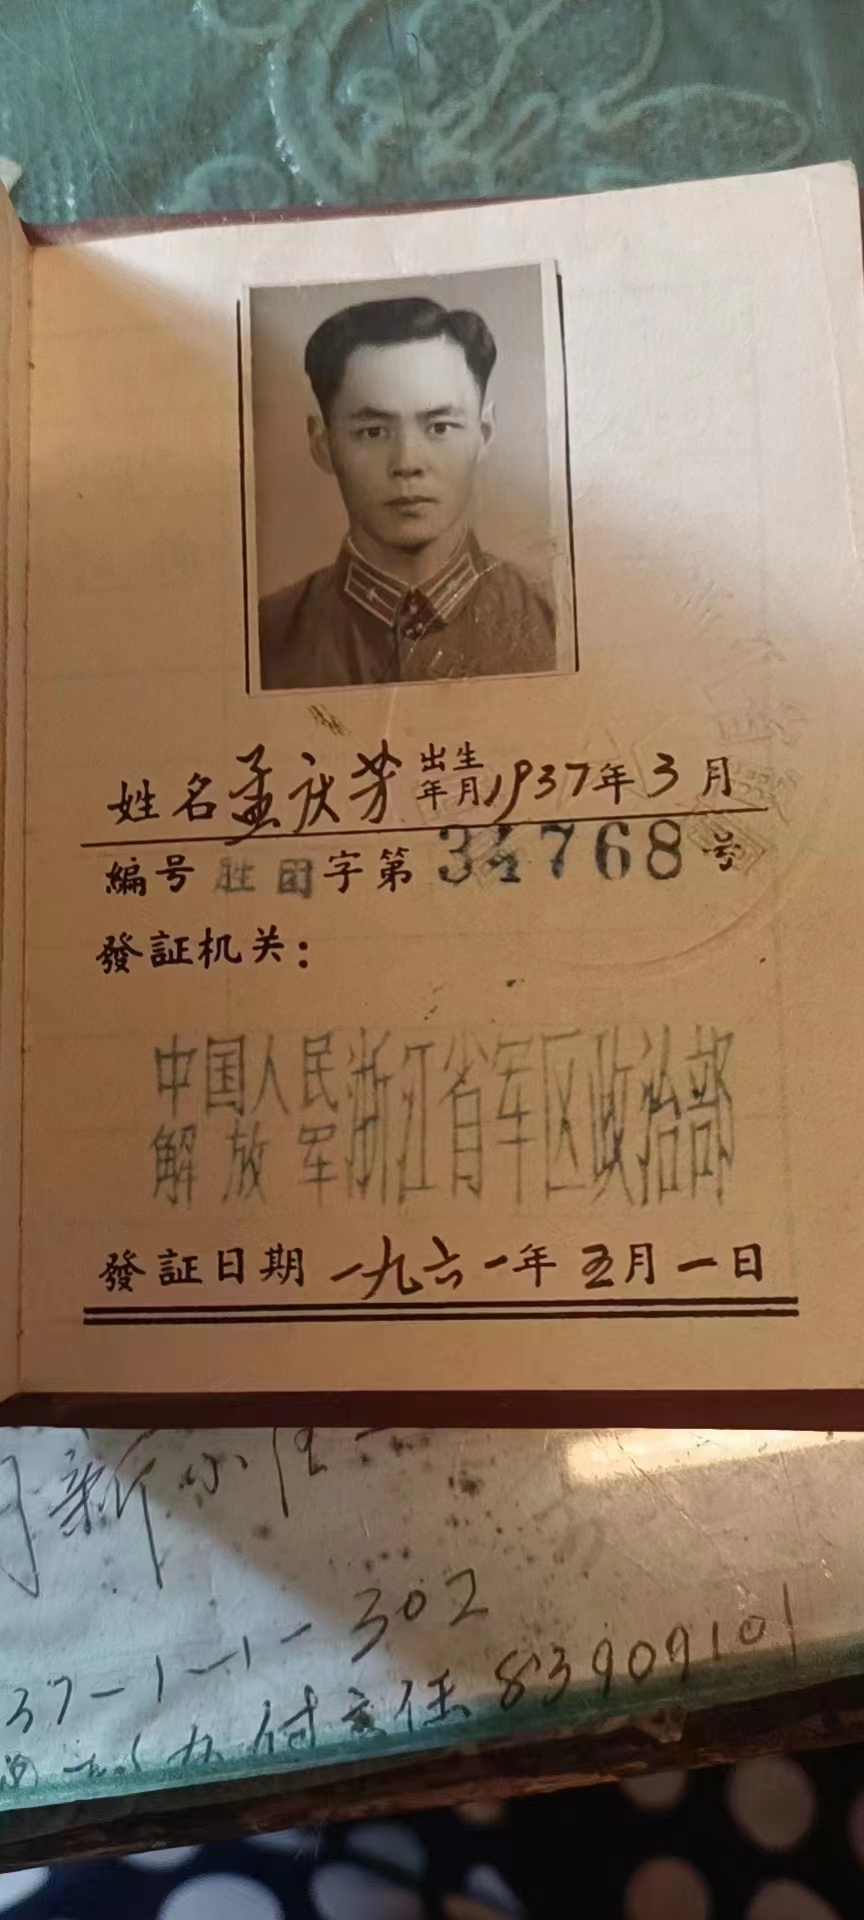 姓名孟庆芳出生年月1937年3月
編号胜团字第34768号
發証机关：
中国人民解放军浙江省军区政治部
發証日期一九六一年五月一日
新
37-1-1-302
付主任83909101